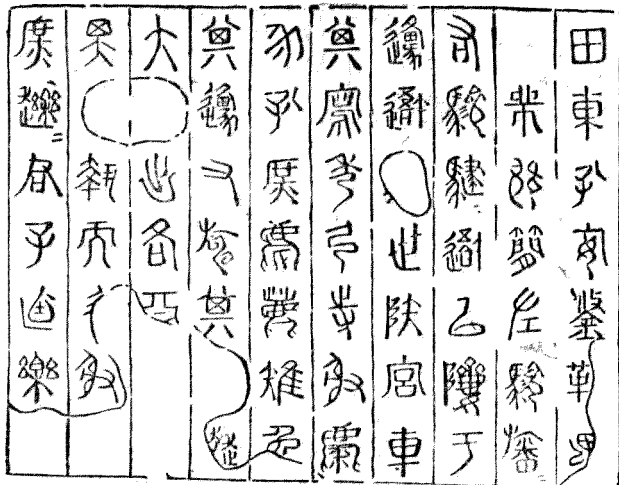 田車孔安鋚勒
既簡左驂旛
右驂騝避以隮于
邍避止陕宮車
其寫秀弓寺射麋
豕孔庶麀鹿雉兔
其邍又旃其
大出各亞
昊執而勿射
庶趮君子逌樂